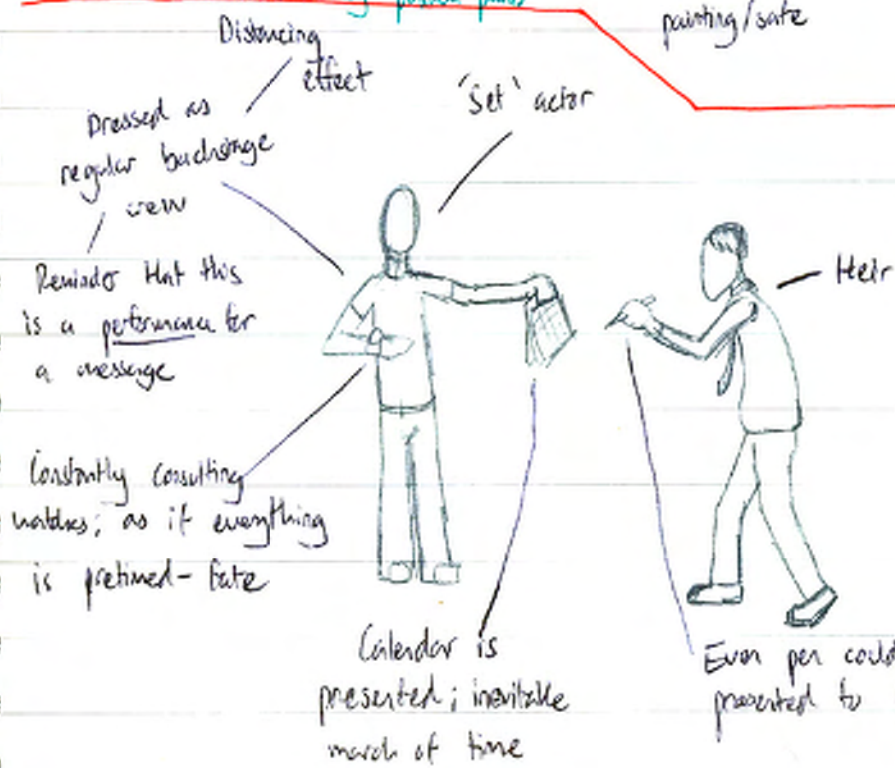 painting/safe
Distancing
effect
'Set' actor
Dressed as
regular backstage
crew
Reminder that this
is a performance for
a message
Heir
Constantly consulting
watches; as if everything
is pretimed - fate
Calendar is
presented; inevitable
march of time
Even pen could
presented to